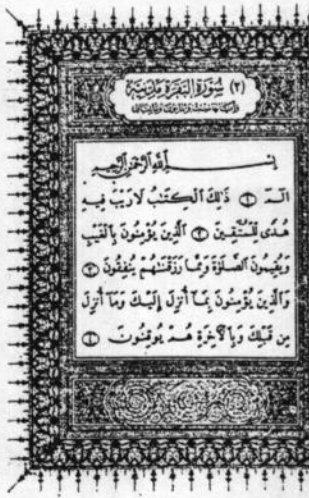 (٢) سُورَةُ الْبَقَرَةِ مَدَنِيَّة
بِسْمِ اللَّهِ الرَّحْمَٰنِ الرَّحِيمِ
الٓمٓ ١ ذَٰلِكَ الْكِتَٰبُ لَا رَيْبَ فِيهِ
هُدًى لِّلْمُتَّقِينَ ٢ الَّذِينَ يُؤْمِنُونَ بِالْغَيْبِ
وَيُقِيمُونَ الصَّلَوٰةَ وَمِمَّا رَزَقْنَٰهُمْ يُنفِقُونَ ٣
وَالَّذِينَ يُؤْمِنُونَ بِمَا أُنزِلَ إِلَيْكَ وَمَا أُنزِلَ
مِن قَبْلِكَ وَبِالْآخِرَةِ هُمْ يُوقِنُونَ ٤